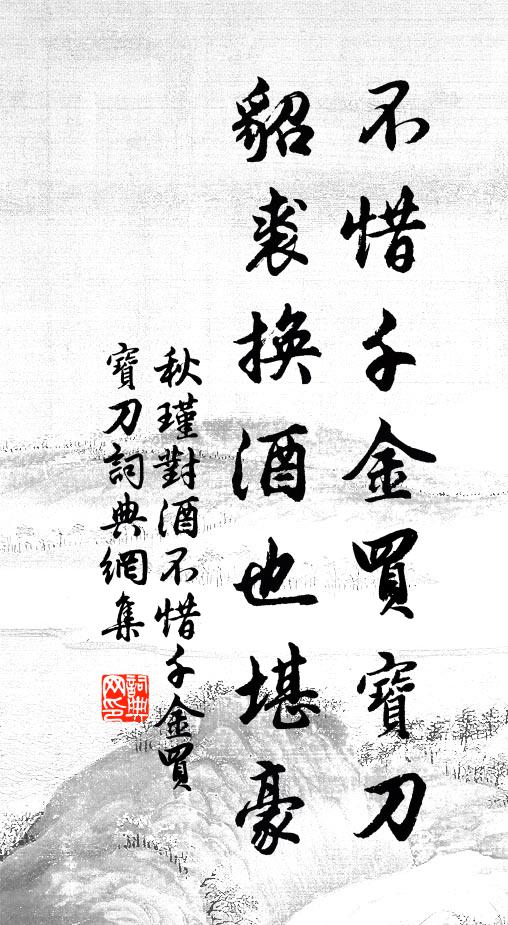 不惜千金買寶刀
貂裘換酒也堪豪
秋瑾對酒不惜千金買
寶刀詞典網集
詞典
网印